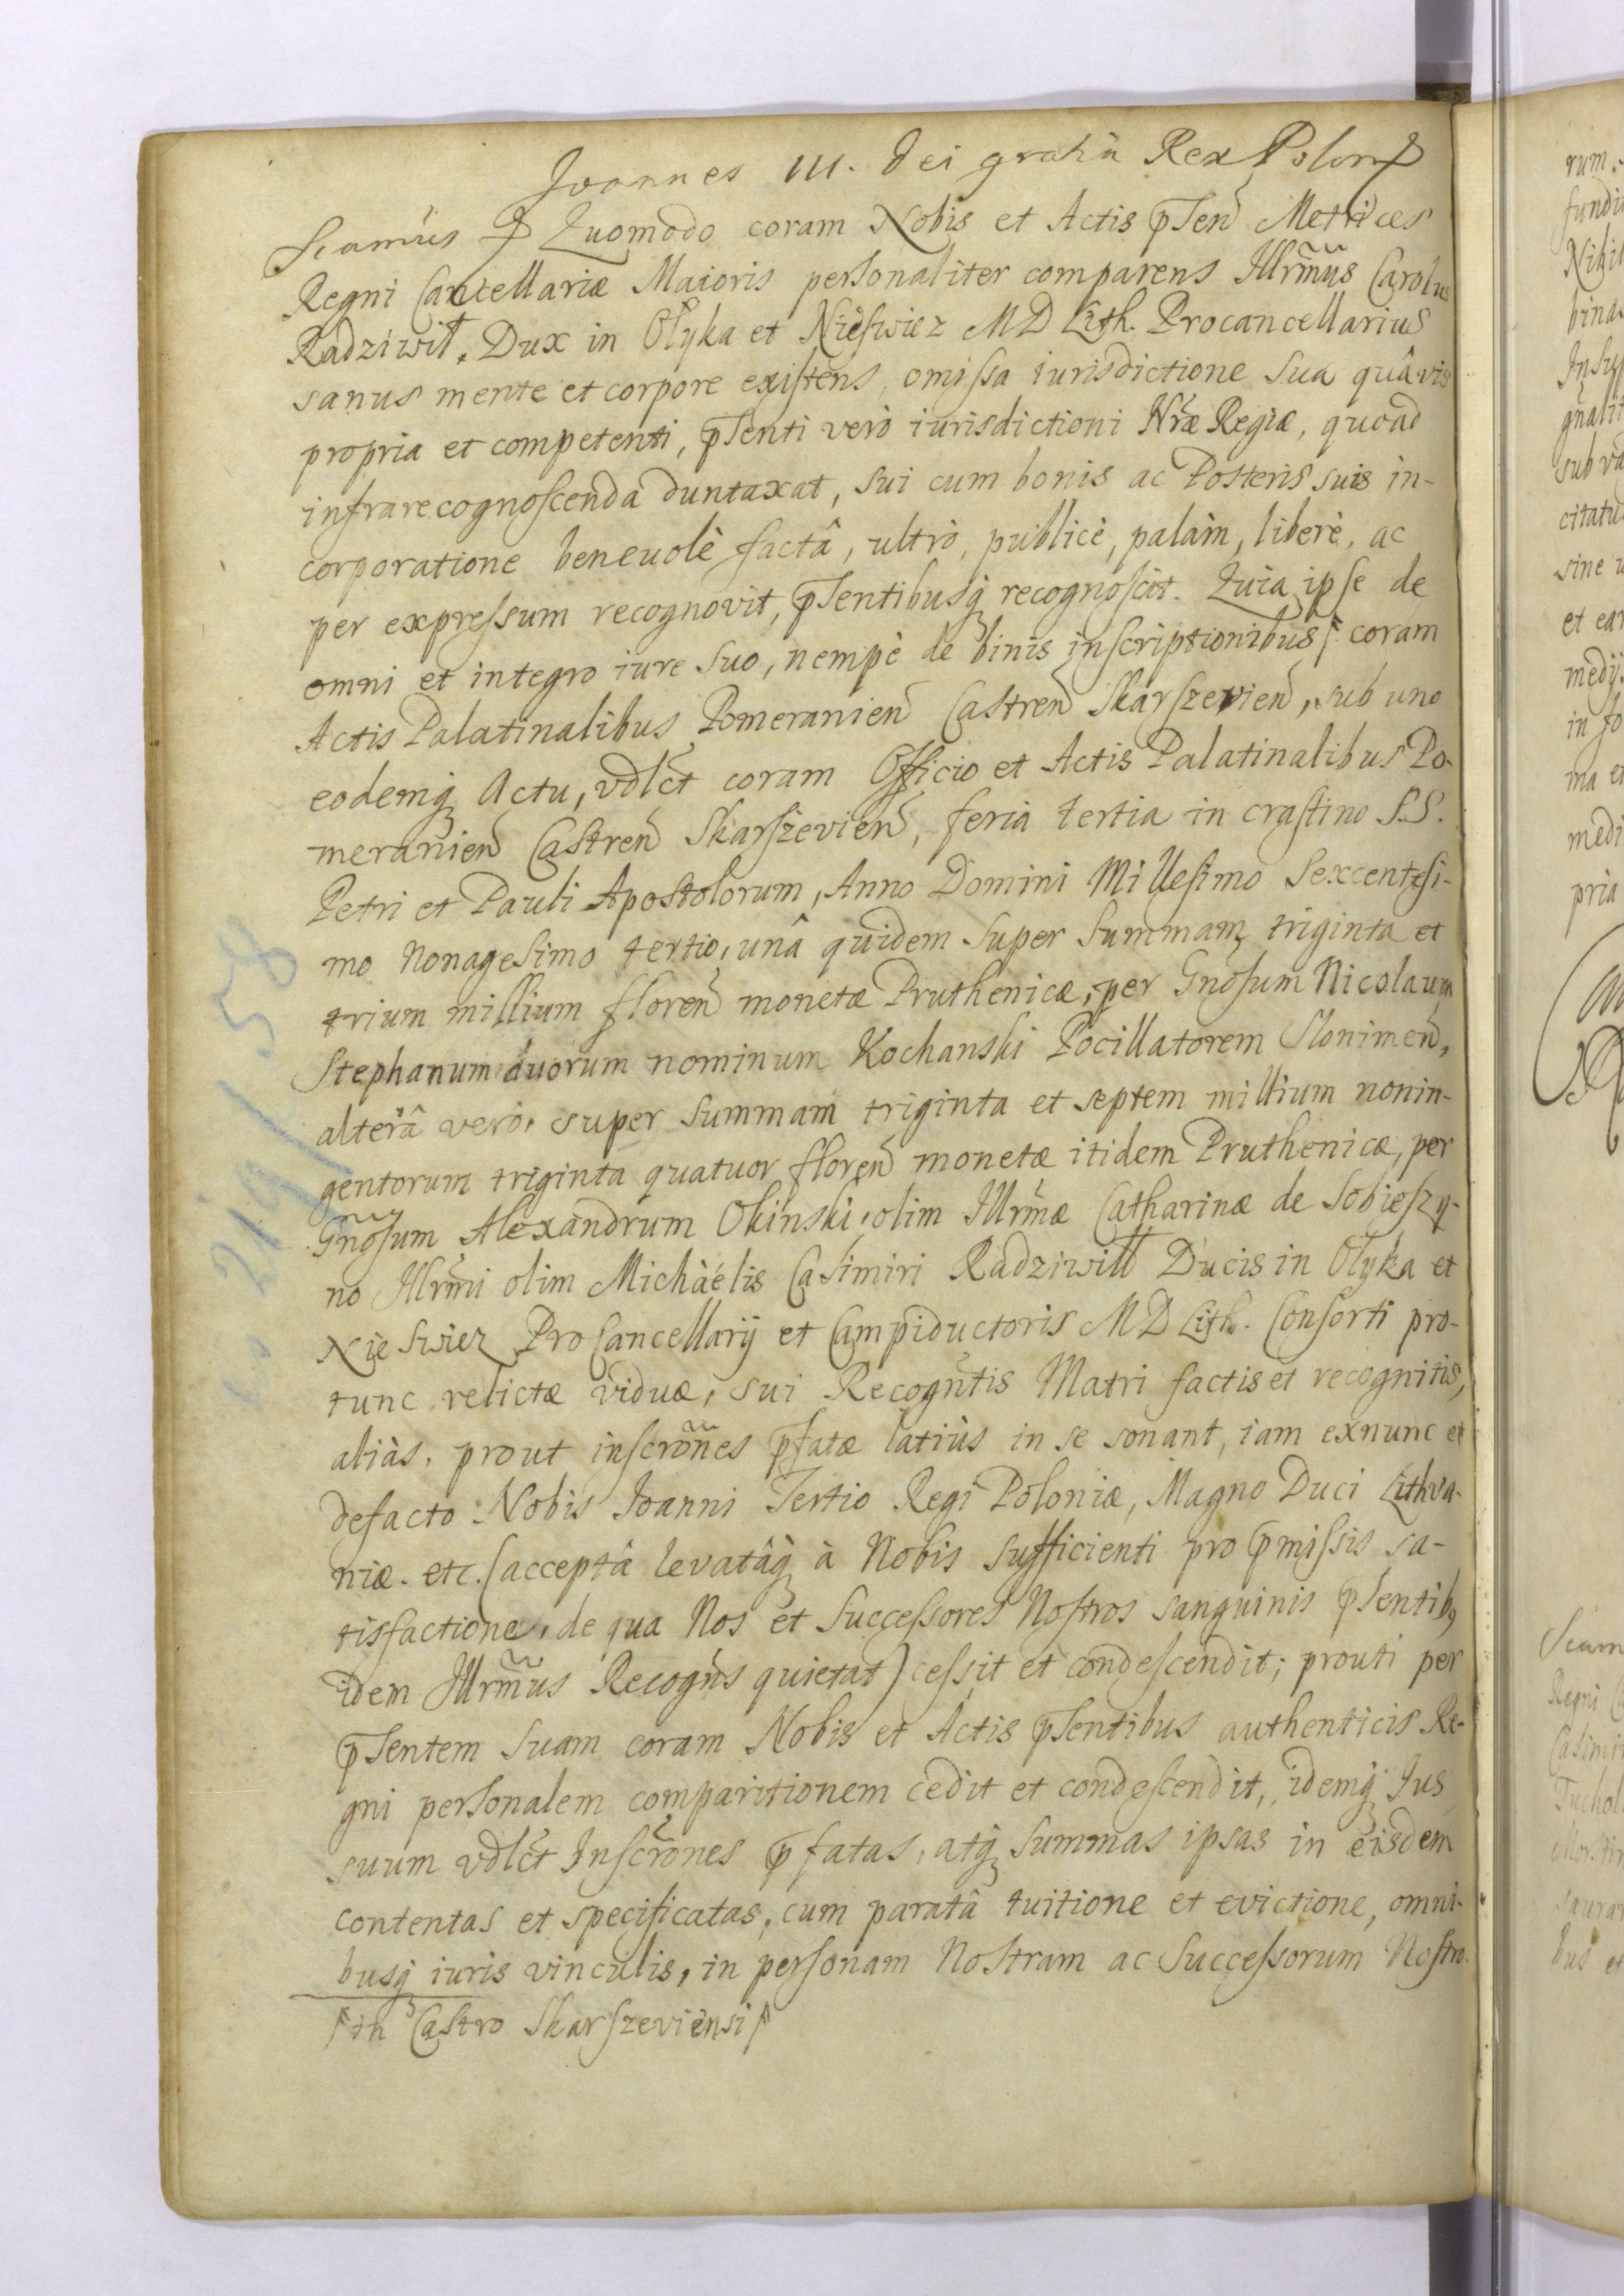 Joannes III. Dei gratiâ Rex Polon
Scamus Quomodo coram Nobis et Actis pñten Metrices
Regni Cancellariæ Maioris personaliter comparens Illrm̃us Carolus
Radziwił, Dux in Ołyka et Nieswiez MD Lith. Procancellarius
sanus mente et corpore existens, omissa iurisdictione sua quâvis
propria et competenti, pñtenti verò iurisdictioni Nræ Regiæ, quoad
infrarecognoscenda duntaxat, sui cum bonis ac Posteris suis in-
corporatione benevolè factâ, ultrò, publicè, palàm, liberè, ac
per expressum recognovit, pñtentibusq recognoscit. Quia ipse de
omni et integro iure suo, nempè de binis inscriptionibus coram
Actis Palatinalibus Pomeranien Castren Skarszevien, sub uno
eodemq Actu, vdlct coram Officio et Actis Palatinalibus Po-
meranien Castren Skarszevien, feria tertia in crastino S.S.
Petri et Pauli Apostolorum, Anno Domini Millesimo Sexcentesi-
mo Nonagesimo tertio, unâ quidem super summam triginta et
trium millium floren monetæ Pruthenicæ, per Gnosum Nicolaum
Stephanum duorum nominum Kochanski Pocillatorem Slonimen,
alterâ verò, super summam triginta et septem millium nonin-
gentorum triginta quatuor floren monetæ itidem Pruthenicæ, per
Gñosum Alexandrum Okinski, olim Illrmæ Catharinæ de Sobieszy-
no Illrmi olim Michaëlis Casimiri Radziwiłł Ducis in Ołyka et
Nieswiez ProCancellarij et Campiductoris MD Lith. Consorti pro-
tunc relictæ viduæ, sui Recogntis Matri factis et recognitis,
aliàs, prout inscrõnes pfatæ latiùs in se sonant, iam exnunc et
defacto Nobis Joanni Tertio Regi Poloniæ, Magno Duci Lithva-
niæ. etc. (acceptâ levatâq à Nobis sufficienti pro pmissis sa-
tisfactione, de qua Nos et Successores Nostros sanguinis pñtentib9
idem Illrm̃us Recogñs quietat) cessit et condescendit; prouti per
pñtentem suam coram Nobis et Actis pñtentibus authenticis Re-
gni personalem comparitionem cedit et condescendit, idemq Jus
suum vdlct Inscrõnes pfatas, atq summas ipsas in eisdem
contentas et specificatas, cum paratâ tuitione et evictione, omni-
busq iuris vinculis, in personam Nostram ac Successorum Nostro-
in Castro Skarszeviensi
219/58